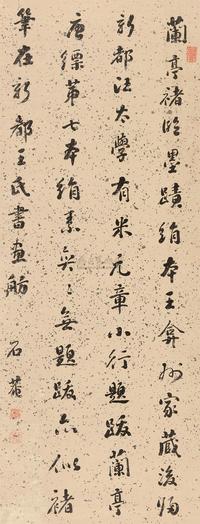 蘭亭褚临墨蹟絹本王弇州家藏後归
新都汪太學有米元章小行題跋蘭亭
唐標第七本絹素無題跋亦似褚
筆在新都王氏書画舫
石菴